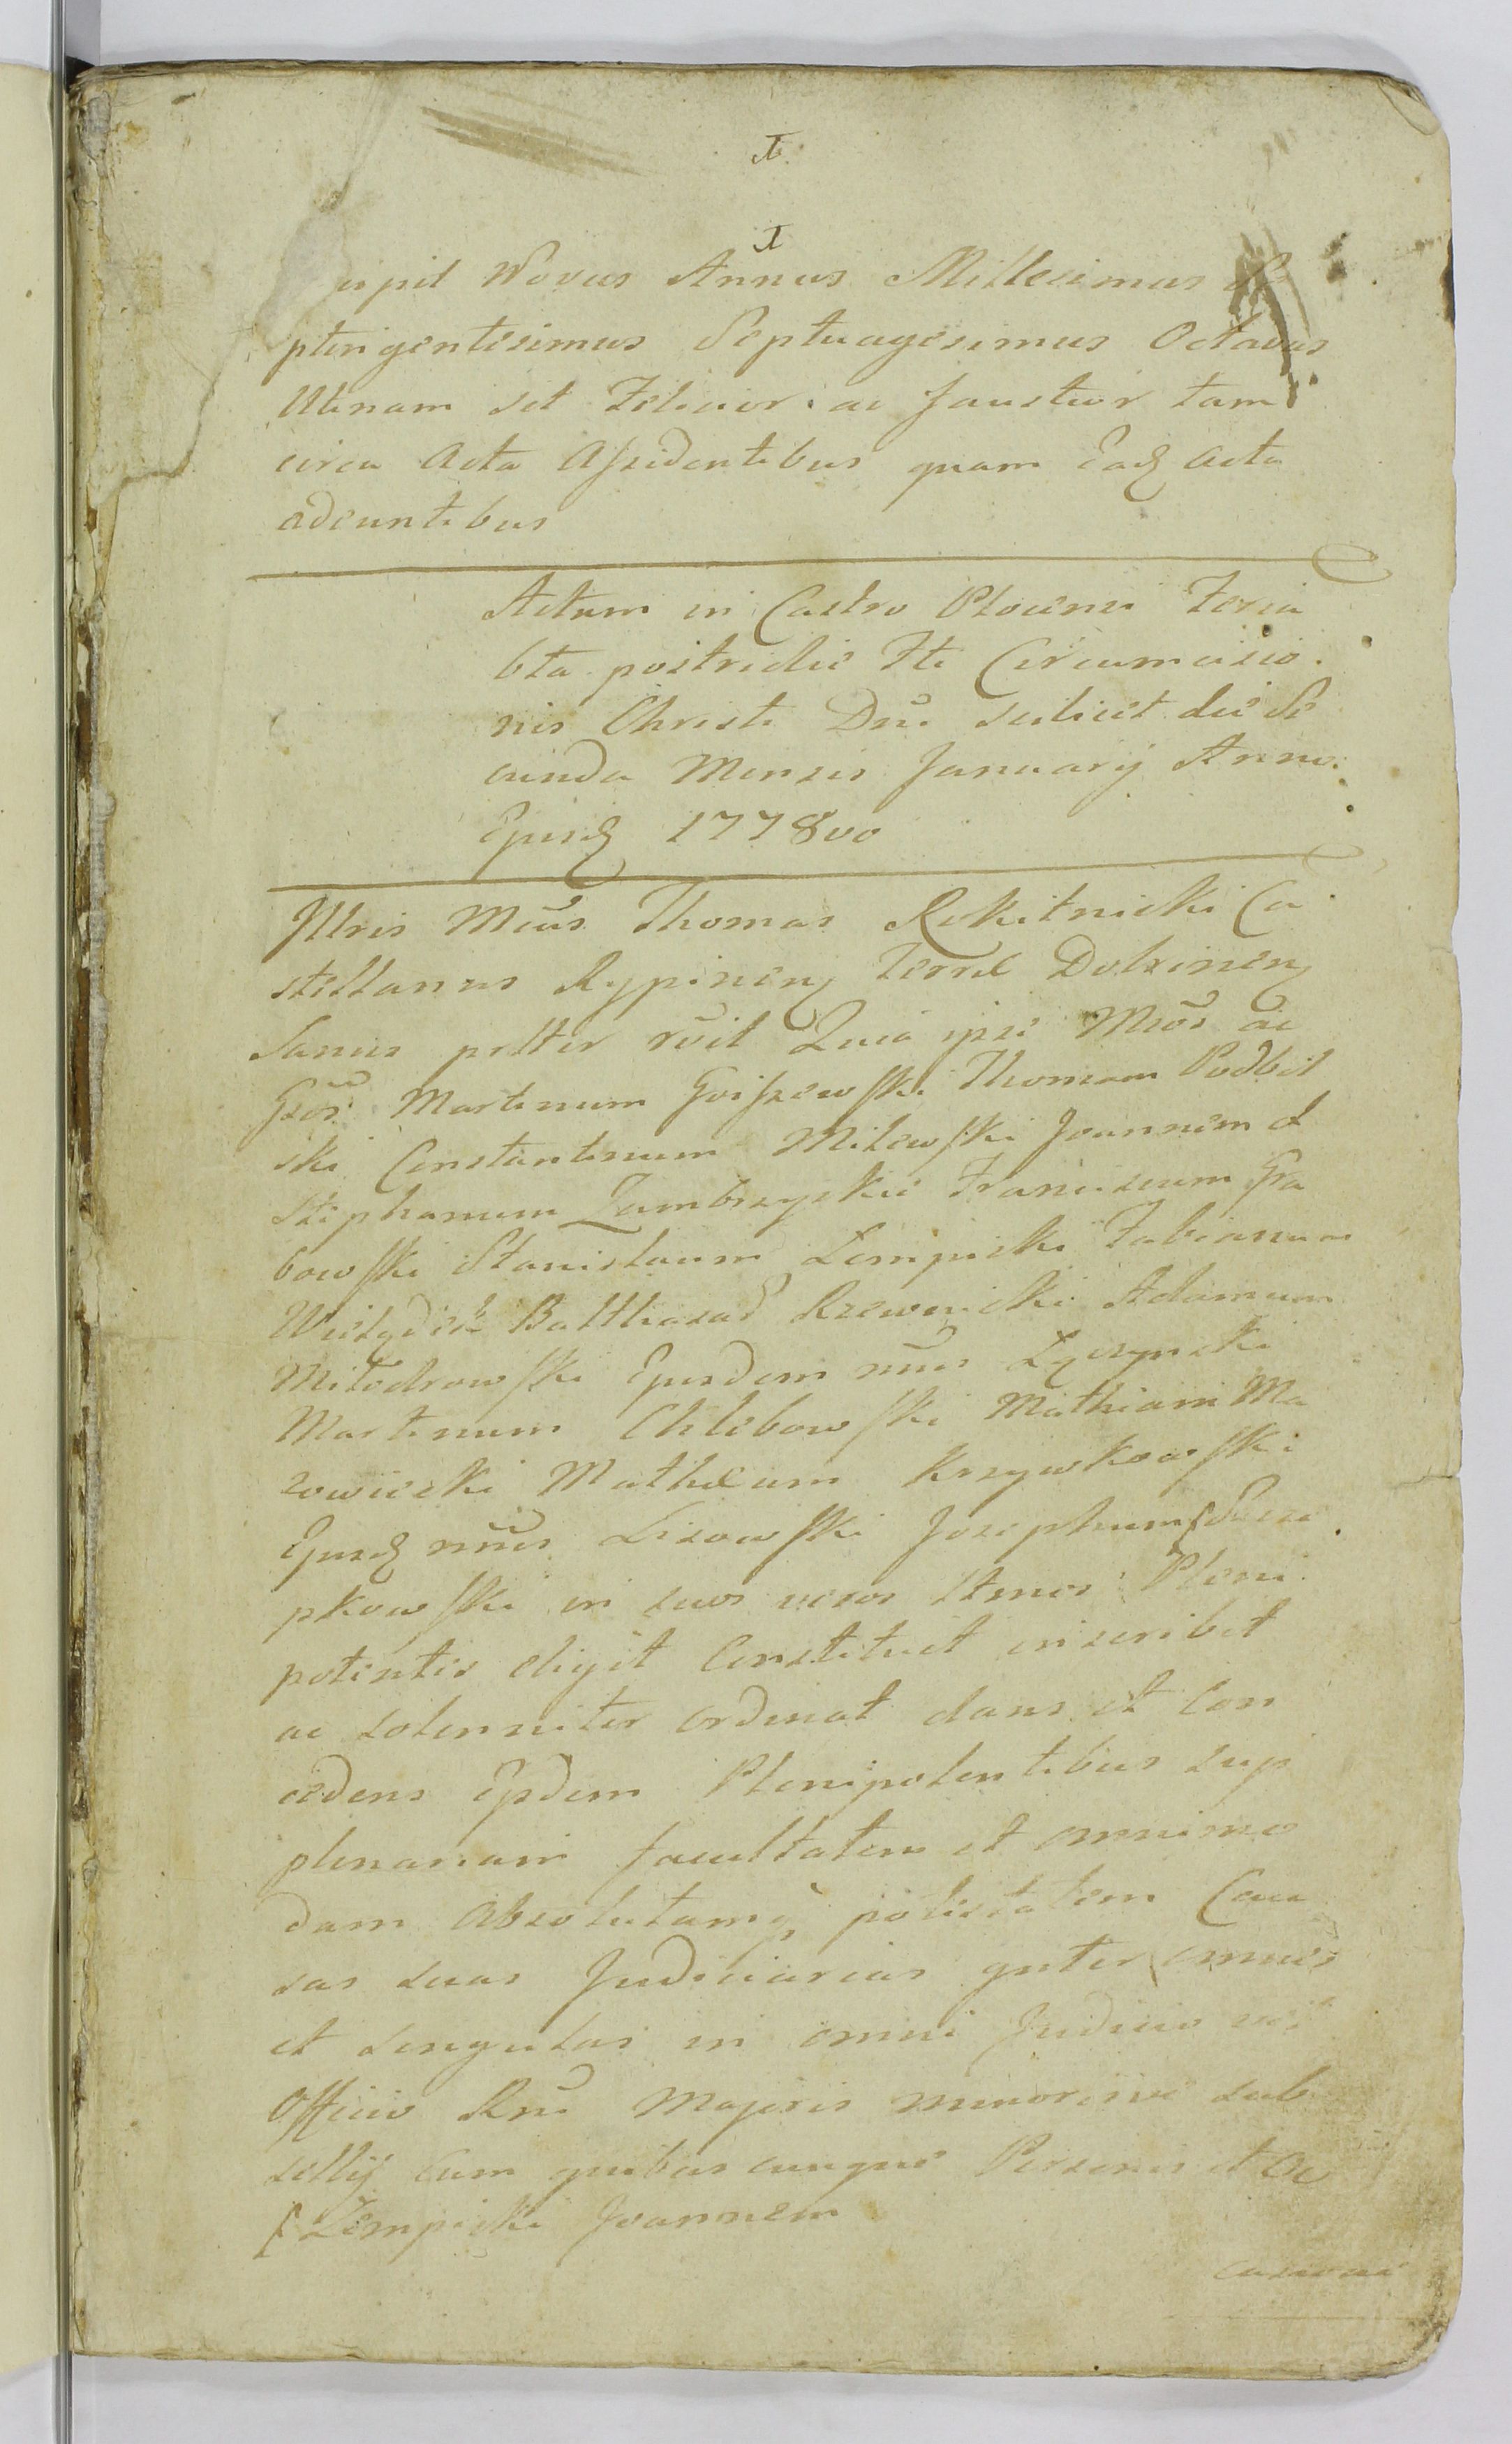 1
1
cipit Novus Annus Millesimus Se
ptingentesimus Septuagesimus Octavus
Utinam sit Felicior ac faustior tam
circa Acta Assidentibus quam Eadq Acta
adeuntibus
Actum in Castro Plocensi Feria
6ta postridie Fti Circumcisio
nis Christi Dni scilicet die Se
cunda Mensis January Anno
Ejusdq 1778vo
Illris Mcus Thomas Rokitnicki Ca
stellanus Rypinen Terræ Dobrinen
Sanus pntter rcit Quia ipse Mcos ac
Gsos Martinum Goiszewski Thomam Podbil
ski Constantinum Milewski Joannem et
Stephanum Zambrzyskie Franciscum Gra
bowski Stanislaum Lempicki Fabianum
Balthasar Rzewnicki Adamum
Milodrowski Ejusdem nnis Zyrzynski
Martinum Chlebowski Mathiam Ma
zowiecki Mathæum Krzywkowski
Ejusdq nnis Lisowski Josephum
pkowski in suos veros ltmos Pleni
potentes eligit Constituit inscribit
ac solenniter ordinat dans et Con
cedens Ejsdem Plenipotentibus suis
plenariam facultatem et omnimo
dam Absolutamq potestatem Cau
sas suas Judiciarias gnter omnes
et singulas in omni Judicio vel
Officio Rni Majoris minorisve sub
sellij cum quibus cunque Personis et Oc
Lempicki Joannem
casione